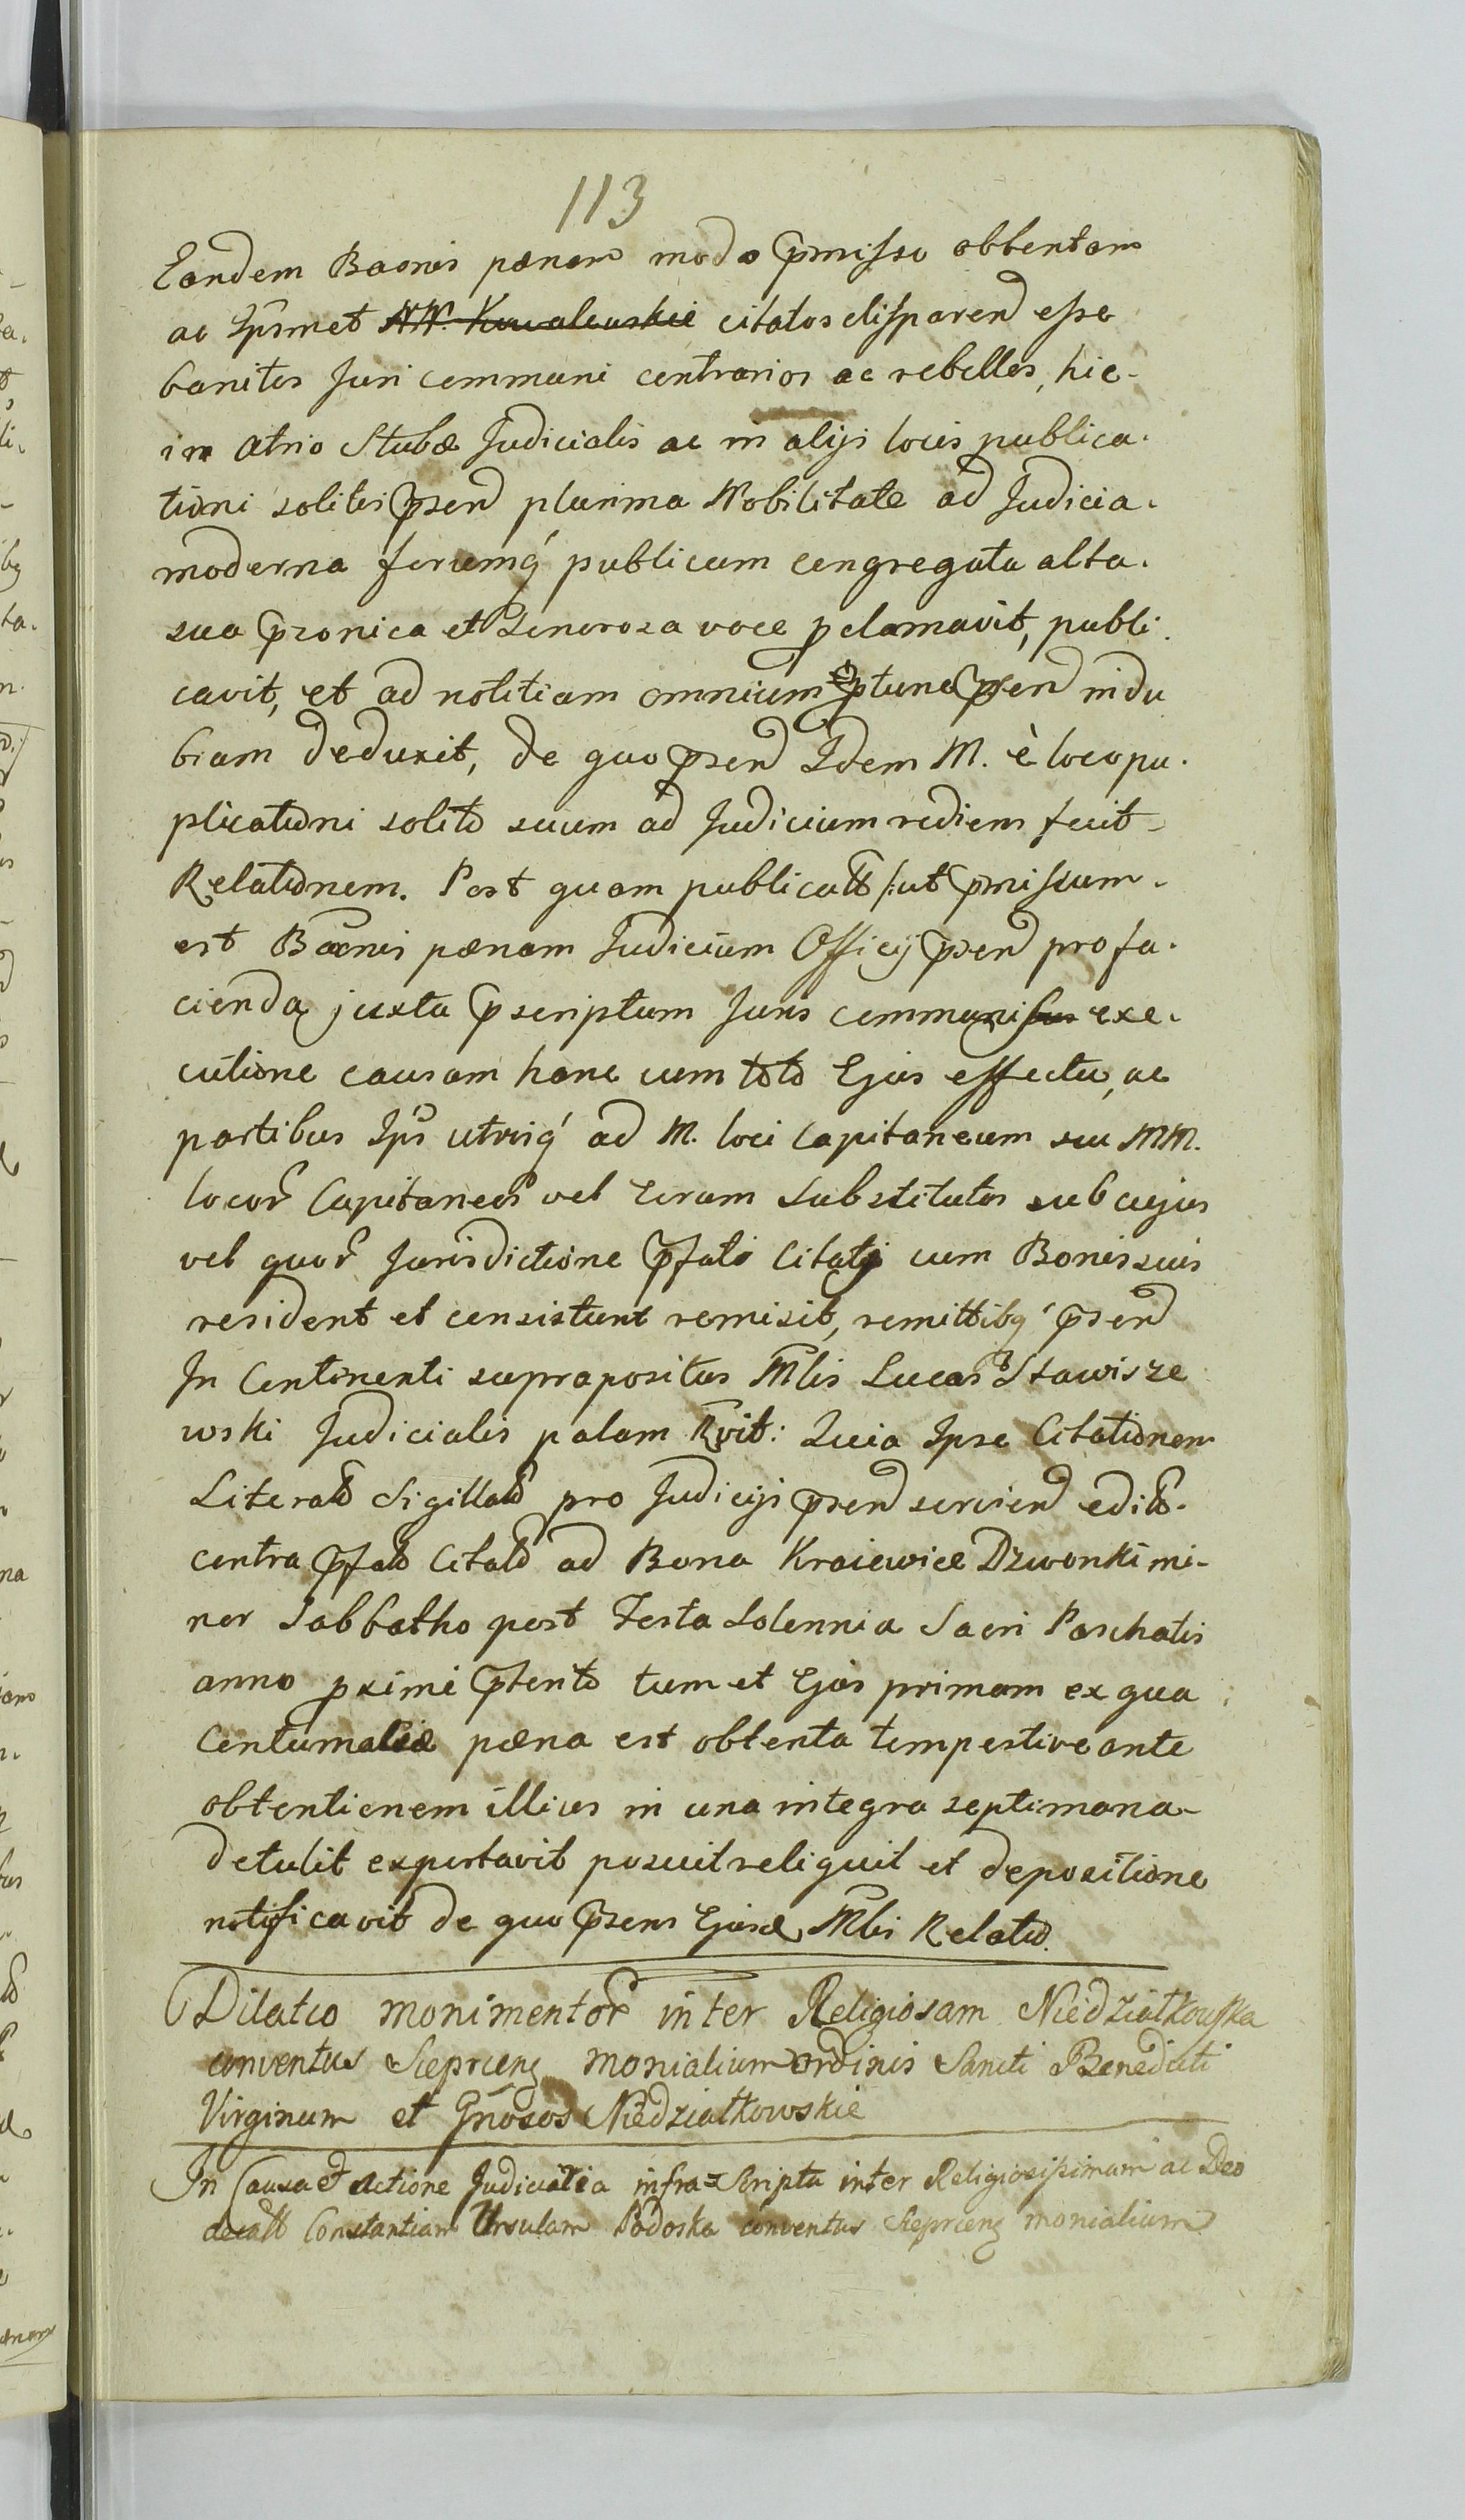 113
Eandem Baonis pænam modo pmisso obtentam
ac Ipsmet NN. Kowalewskie citatos disparend esse
banitos Juri communi contrarios ac rebelles, hic
in Atrio Stubæ Judicialis ac in alijs locis publica-
tioni solitis psend plurima Nobilitate ad Judicia
moderna forumq́ publicum congregata alta
sua pronica et Generosa voce pclamavit, publi
cavit, et ad notitiam omnium ptune psend indu
biam deduxit, de quo psend Idem M. è loco pu-
plicationi solito suum ad Judicium rediens fecit
Relationem. Post quam publicatt /: ut pmissum
est Baonis pænam Judicium Officij psend pro fa-
cienda juxta pscriptum Juris communi exe-
cutione causam hanc cum toto Ejus effectu, ac
partibus Ips utrisq́ ad M. loci Capitaneum seu MM.
locor Capitaneos vel Eorum Substitutos sub cujus
vel quor Jurisdictione pfati Citati cum Bonis suis
resident et consistunt remisit, remittitq́ psend
In Continenti suprapositus Mlis Lucas Stawisze
wski Judicialis palam Rvit: Quia Ipse Citationem
Literatt Sigillatt pro Judicijs psend serviend edits
contra pfatt Citatt ad Bona Kraiewice Dzwonki mi-
nor Sabbatho post Festa Solennia Sacri Paschatis
anno pximi ptento tum et Ejus primam ex qua
Centumalis pæna est obtenta tempestive ante
obtentionem illius in una integra septimana
detulit exportavit posuit reliquit et depositione
notificavit de quo psens Ejusd Mlis Relatio.
Dilatio monimentor inter Religiosam Niedziałkowska
conventus Sieprcens monialium ordinis Sancti Benedicti
Virginum et Gnosos Niedziałkowskie
In Causa et Actione Judiciaria infra=Scripta inter Religiosissimam ac Deo
dicatt Constantiam Ursulam Podoska conventus Sieprcens monialium